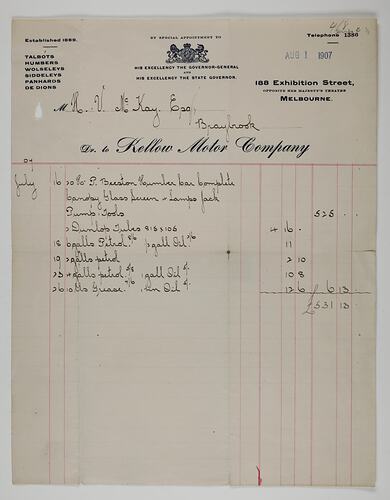 Established 1889.
TALBOTS
HUMBERS
WOLSELEYS
SIDDELEYS
PANHARDS
DE DIONS
BY SPECIAL APPOINTMENT TO
HIS EXCELLENCY THE GOVERNOR-GENERAL
AND
HIS EXCELLENCY THE STATE GOVERNOR.
Telephone 1386
AUG 1 1907
188 Exhibition Street,
OPPOSITE HER MAJESTY'S THEATRE
MELBOURNE.
M H. V. McKay Esq.,
Braybrook
Dr. to Kellow Motor Company
07
July 16 Beeston Humber Car Complete
Canopy Glass Screen & Lamps Jack
Pump Tools 525 . .
Dunlop Tubes 815 x 105 4 16 .
18 galls Petrol gall Oil 11
19 galls petrol 2 10
galls petrol 1 gall Oil 10 8
26 Grease 1 tin Oil 12 6 6 13
£531 13